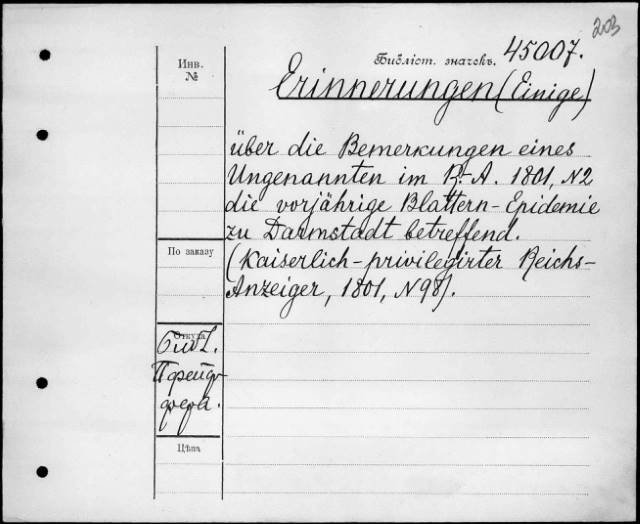 203
Инв.
№
Библіот. значекъ. 45007.
Erinnerungen (Einige)
über die Bemerkungen eines
Ungenannten im R.-A. 1801, N2
die vorjährige Blattern-Epidemie
zu Darmstadt betreffend.
(Kaiserlich-privilegirter Reichs-
Anzeiger, 1801, N 98).
По заказу
Откуда
Библ.
Цѣна